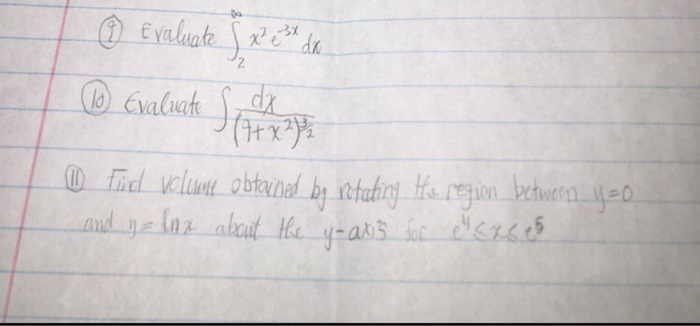 ⑨ Evaluate ∫₂^∞ x² e^-3x dx
⑩ Evaluate ∫ dx/(9+x²)^3/2
⑪ Find volume obtained by rotating the region between y=0
and y = ln x about the y-axis for e⁴ ≤ x ≤ e⁵